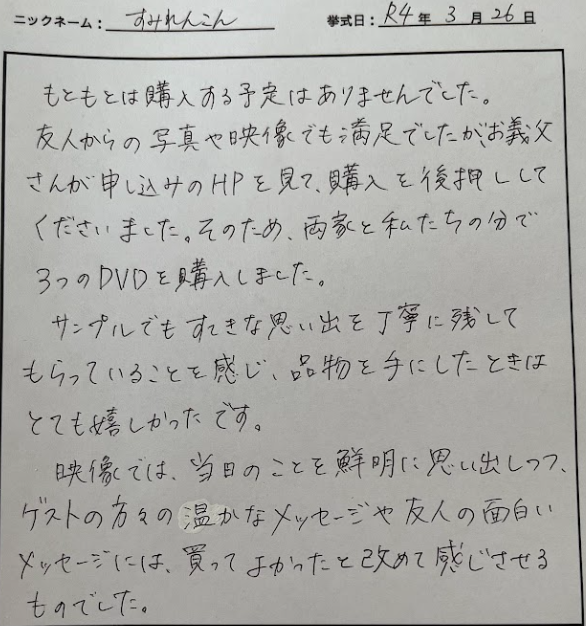 ニックネーム：すみれんこん 挙式日：R4年3月26日
もともとは購入する予定はありませんでした。
友人からの写真や映像でも満足でしたが、お義父
さんが申し込みのHPを見て、購入を後押しして
くださいました。そのため、両家と私たちの分で
3つのDVDを購入しました。
サンプルでもすてきな思い出を丁寧に残して
もらっていることを感じ、品物を手にしたときは
とても嬉しかったです。
映像では、当日のことを鮮明に思い出しつつ、
ゲストの方々の温かなメッセージや友人の面白い
メッセージには、買ってよかったと改めて感じさせる
ものでした。